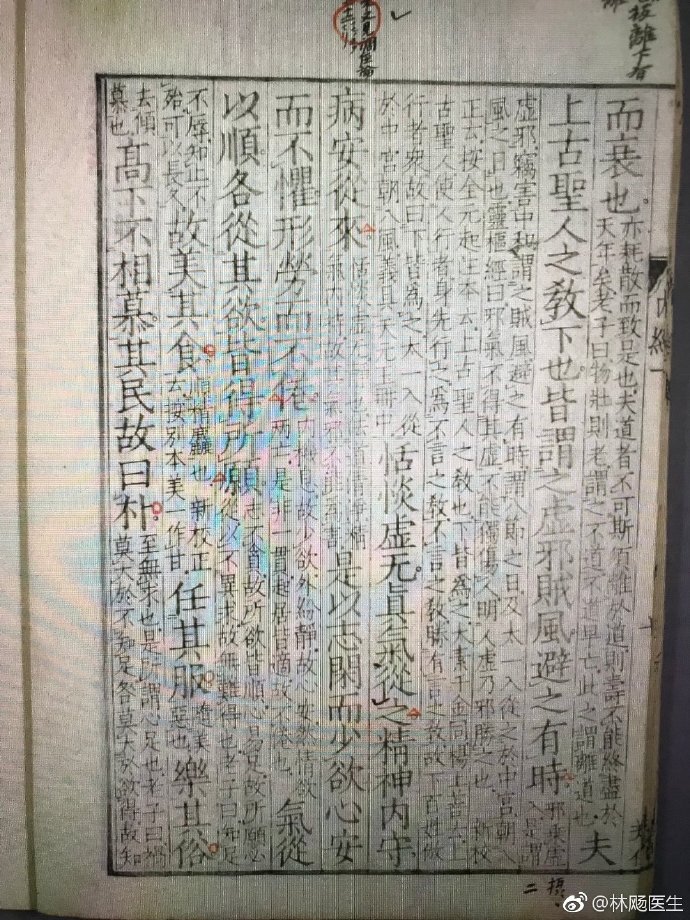 而衰也。
亦耗散而致是也夫道者不可斯須離於道則壽不能終盡於
天年矣老子曰物壯則老謂之不道不道早亡此之謂離道也
夫
上古聖人之教下也皆謂之虛邪賊風避之有時
邪乘虛
入是謂
虛邪竊害中和謂之賊風避之有時謂八節之日及太一入從之於中宮朝八
風之日也靈樞經曰邪氣不得其虛不能獨傷人明人虛乃邪勝之也 新校
正云按全元起注本云上古聖人之教也下皆為之太素千金同楊上善云上
古聖人使人行者身先行之為不言之教不言之教勝有言之教故下百姓倣
行者衆故曰下皆為之太一入從
於中宮朝八風義具天元玉冊中
恬惔虛无真氣從之精神內守
病安從來
恬惔虛无靜也法道清淨精
氣內持故其氣邪不能為害
是以志閑而少欲心安
而不懼形勞而不倦
內機息故少欲外紛靜故心安然情欲
兩亡是非一貫起居皆適故不倦也
氣從
以順各從其欲皆得所願
志不貪故所欲皆順心易足故所願必
從以不異求故無難得也老子曰知足
不辱知止不
殆可以長久
故美其食
順精麤也 新校正
云按別本美一作甘
任其服
隨美
惡也
樂其俗
去傾
慕也
高下不相慕其民故曰朴
至無求也是所謂心足也老子曰禍
莫大於不知足咎莫大於欲得故知
内經一
@林飏医生